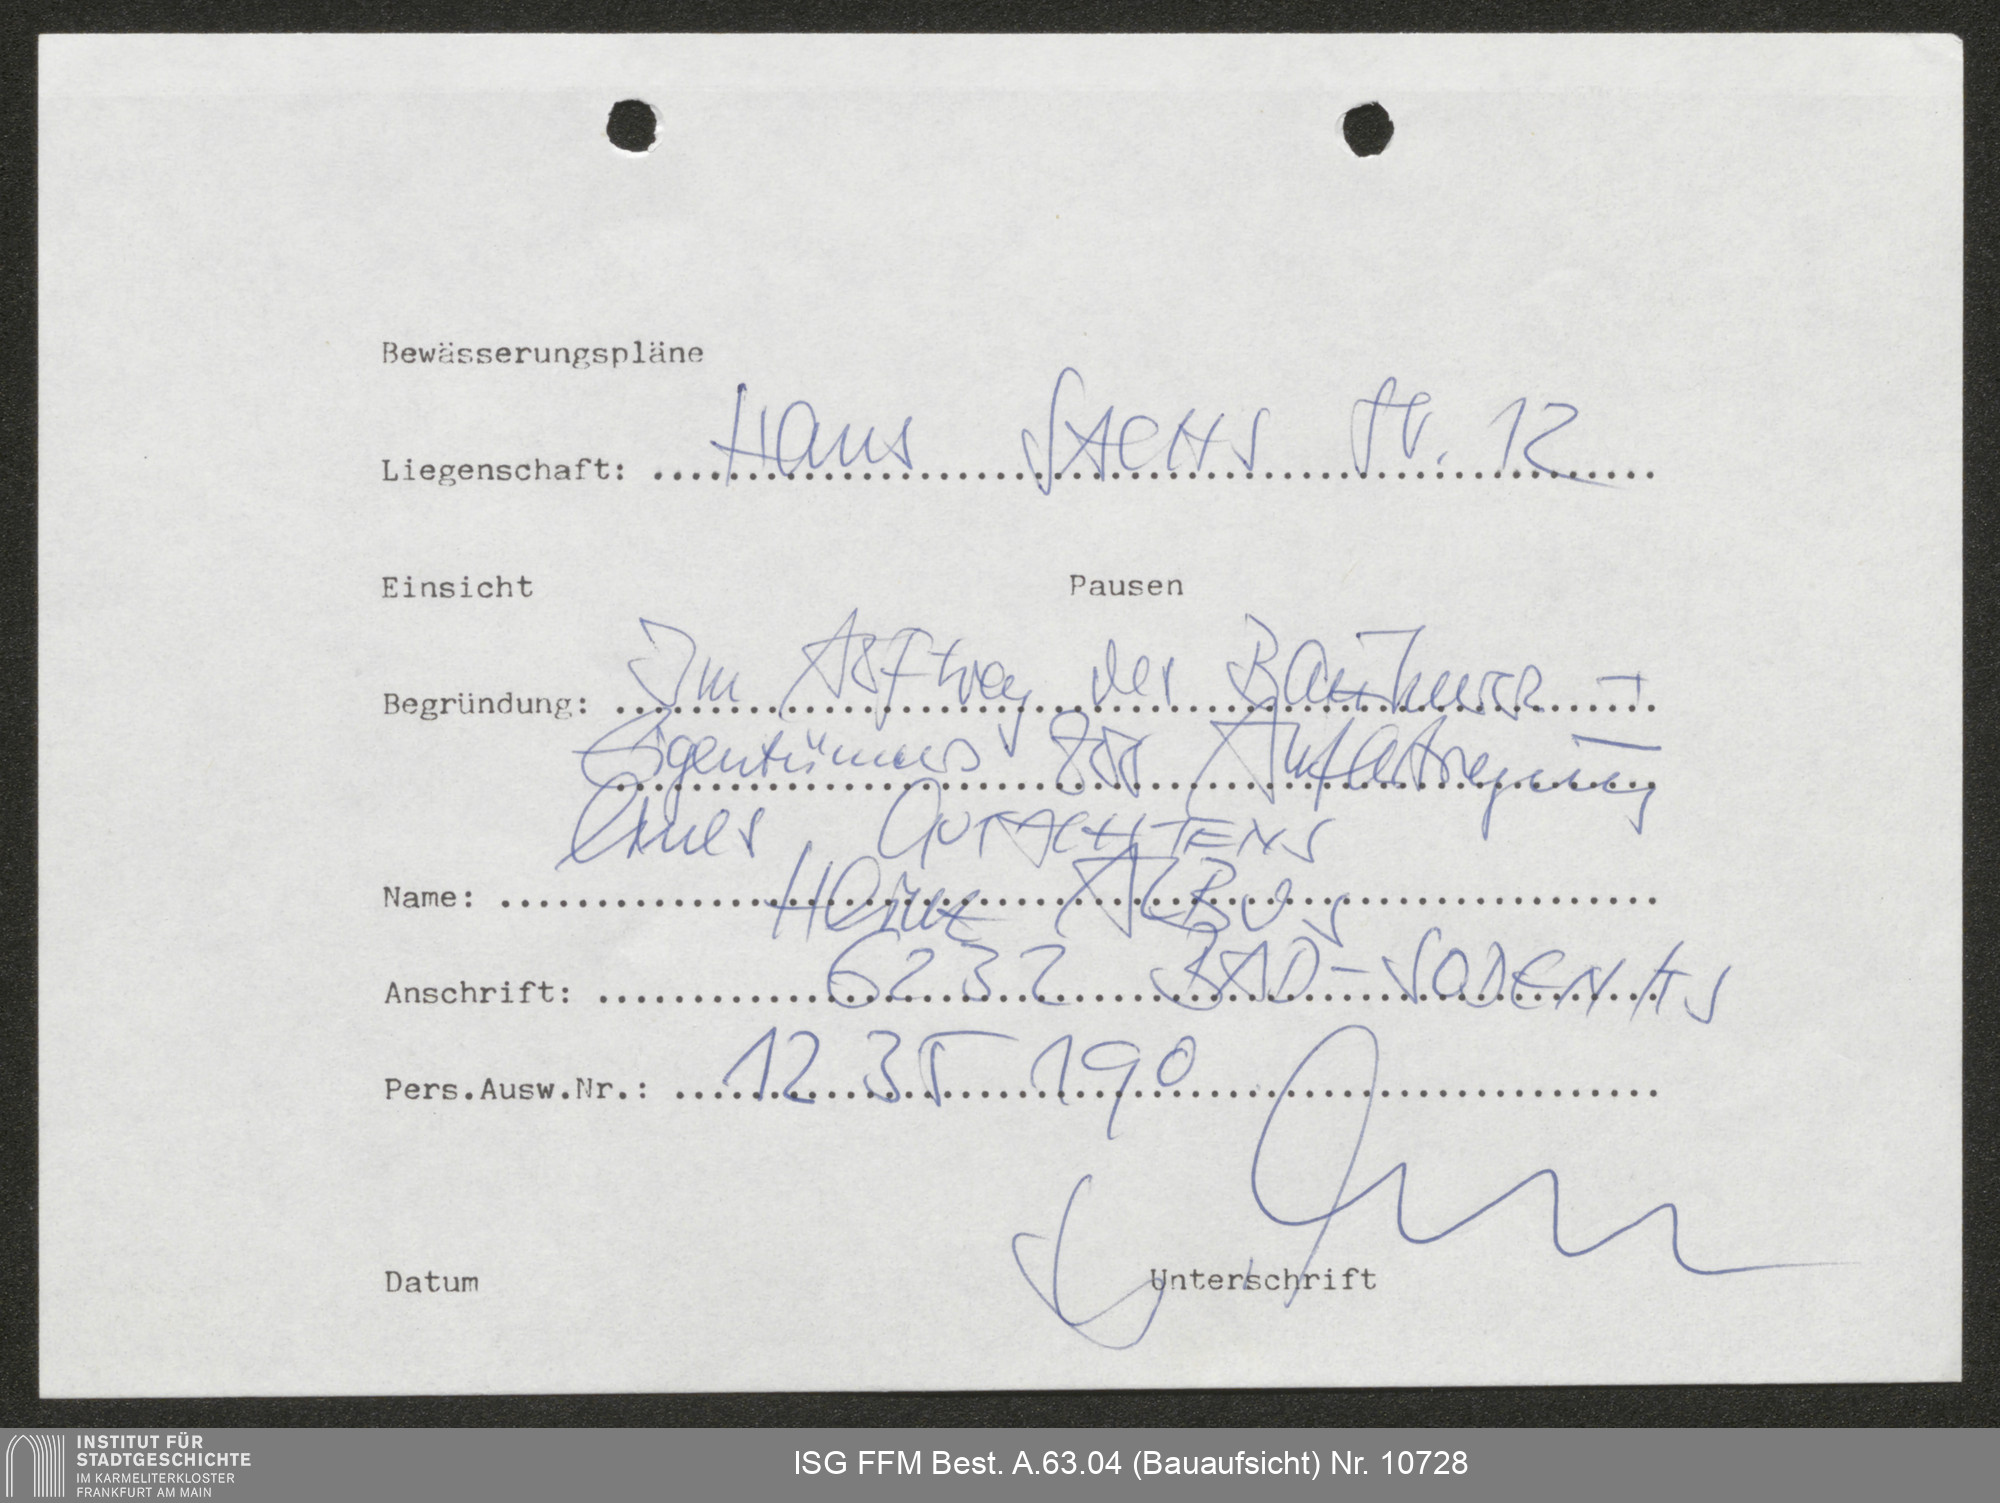 Bewässerungspläne
Liegenschaft: Hans SACHS Str. 12
Einsicht Pausen
Begründung: Im Auftrag des
Eigentümers zur
eines GUTACHTENS
Name: Heinz ALBUS
Anschrift: 6232 BAD-SODEN/TS
Pers.Ausw.Nr.: 1235190
Datum Unterschrift
INSTITUT FÜR
STADTGESCHICHTE
IM KARMELITERKLOSTER
FRANKFURT AM MAIN
ISG FFM Best. A.63.04 (Bauaufsicht) Nr. 10728